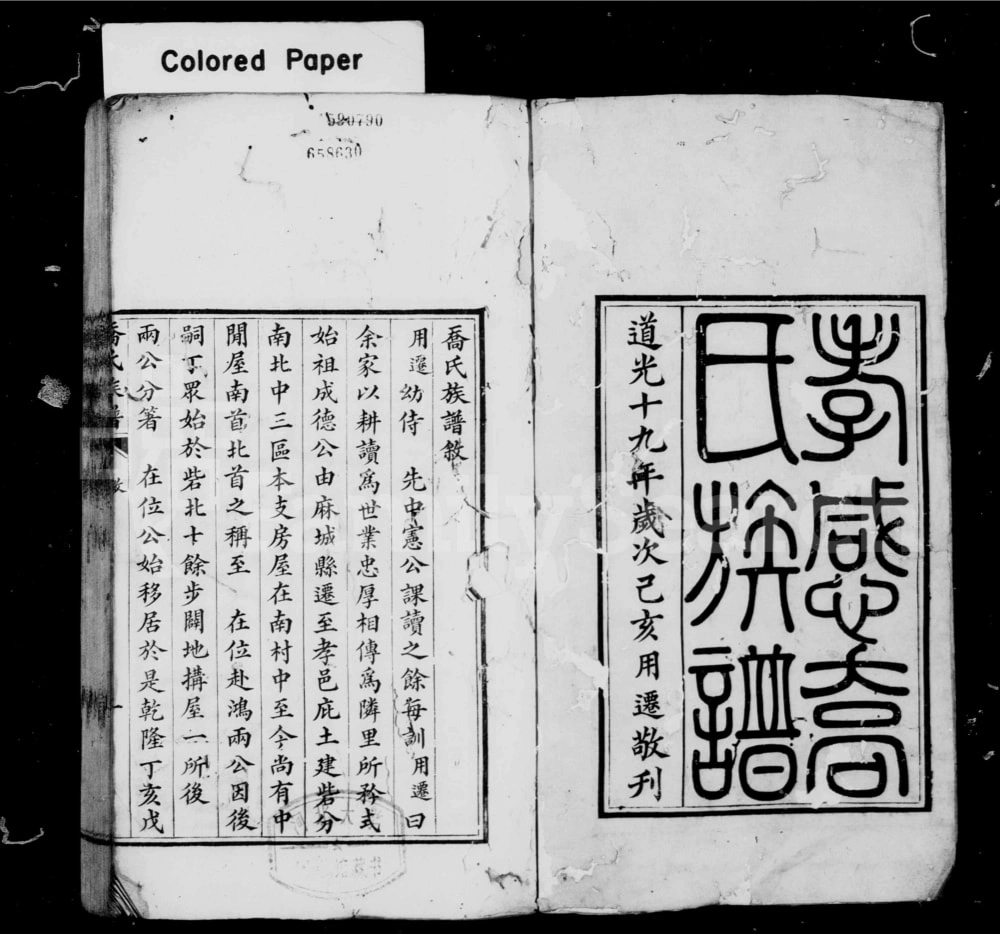 Colored Paper
590790
658630
孝感喬
氏族譜
道光十九年歲次己亥用遷敬刊
喬氏族譜敘
用遷幼侍 先中憲公課讀之餘每訓用遷曰
余家以耕讀為世業忠厚相傳為隣里所矜式
始祖成德公由麻城縣遷至孝邑庇土建砦分
南北中三區本支房屋在南村中至今尚有中
間屋南首北首之稱至 在位赴鴻兩公因後
嗣丁眾始於砦北十餘步闢地搆屋一所後
兩公分箸 在位公始移居於是乾隆丁亥戊
喬氏族譜 敘 一
FamilySearch